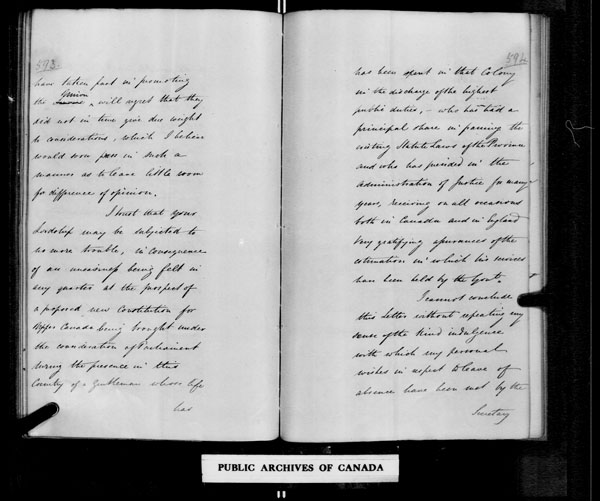 593
have taken part in promoting
the Union, will regret that they
did not in time give due weight
to considerations, which I believe
would soon pass in such a
manner as to leave little room
for difference of opinion.
I trust that Your
Lordship may be subjected to
no more trouble, in consequence
of an uneasiness being felt in
any quarter at the prospect of
a proposed new Constitution for
Upper Canada being brought under
the consideration of Parliament
during the presence in this
Country of a Gentleman whose life
has
594
has been spent in that Colony
in the discharge of the highest
public duties, – who has had a
principal share in passing the
existing Statute Laws of the Province
and who has presided in the
administration of Justice for many
years, receiving on all occasions
both in Canada and in England
very gratifying assurances of the
estimation in which his services
have been held by the Govt.
I cannot conclude
this Letter without repeating my
sense of the kind indulgence
with which my personal
wishes in respect to leave of
absence have been met by the
Secretary
PUBLIC ARCHIVES OF CANADA